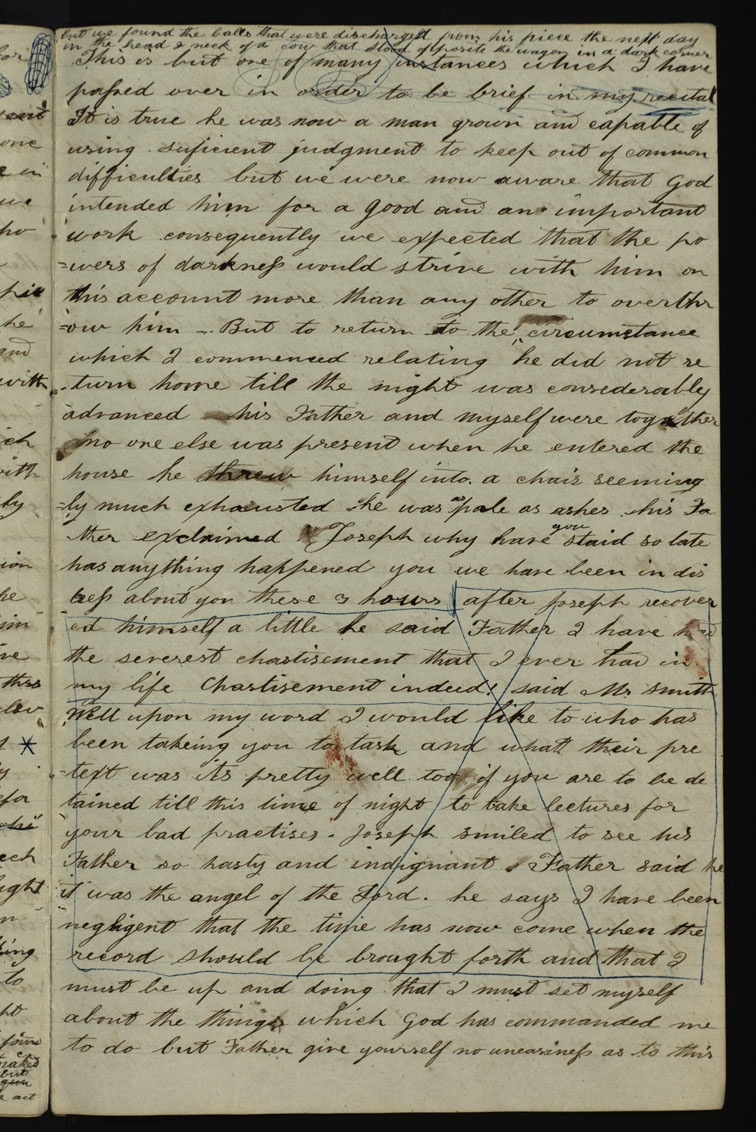 but we found the balls that were discharged from his piece the next day
in the head & neck of a cow that stood opposite the wagon in a dark corner
This is but one of many instances which I have
passed over in order to be brief in my recital
It is true he was now a man grown and capable of
using suficient judgment to keep out of common
difficulties but we were now aware that God
intended him for a good and an important
work consequently we expected that the po
=wers of darkness would strive with him on
this account more than any other to overthr
=ow him - But to return to the circumstance
which I commenced relating he did not re
-turn home till the night was considerably
advanced his Father and myself were together
no one else was present when he entered the
house he threw himself into a chair seeming
=ly much exhausted he was as pale as ashes his Fa
ther exclaimed Joseph why have you staid so late
has anything happened you we have been in dis
tress about you these 3 hours after Joseph recover
ed himself a little he said Father I have had
the severest chastisement that I ever had in
my life Chastisement indeed! said Mr Smith
Well upon my word I would like to who has
been takeing you to task and what their pre
-text was its pretty well too if you are to be de
tained till this time of night to take lectures for
your bad practises. Joseph smiled to see his
Father so hasty and indignant. Father said he
it was the angel of the Lord. he says I have been
negligent that the time has now come when the
record should be brought forth and that I
must be up and doing that I must set myself
about the things which God has commanded me
to do but Father give yourself no uneasiness as to this